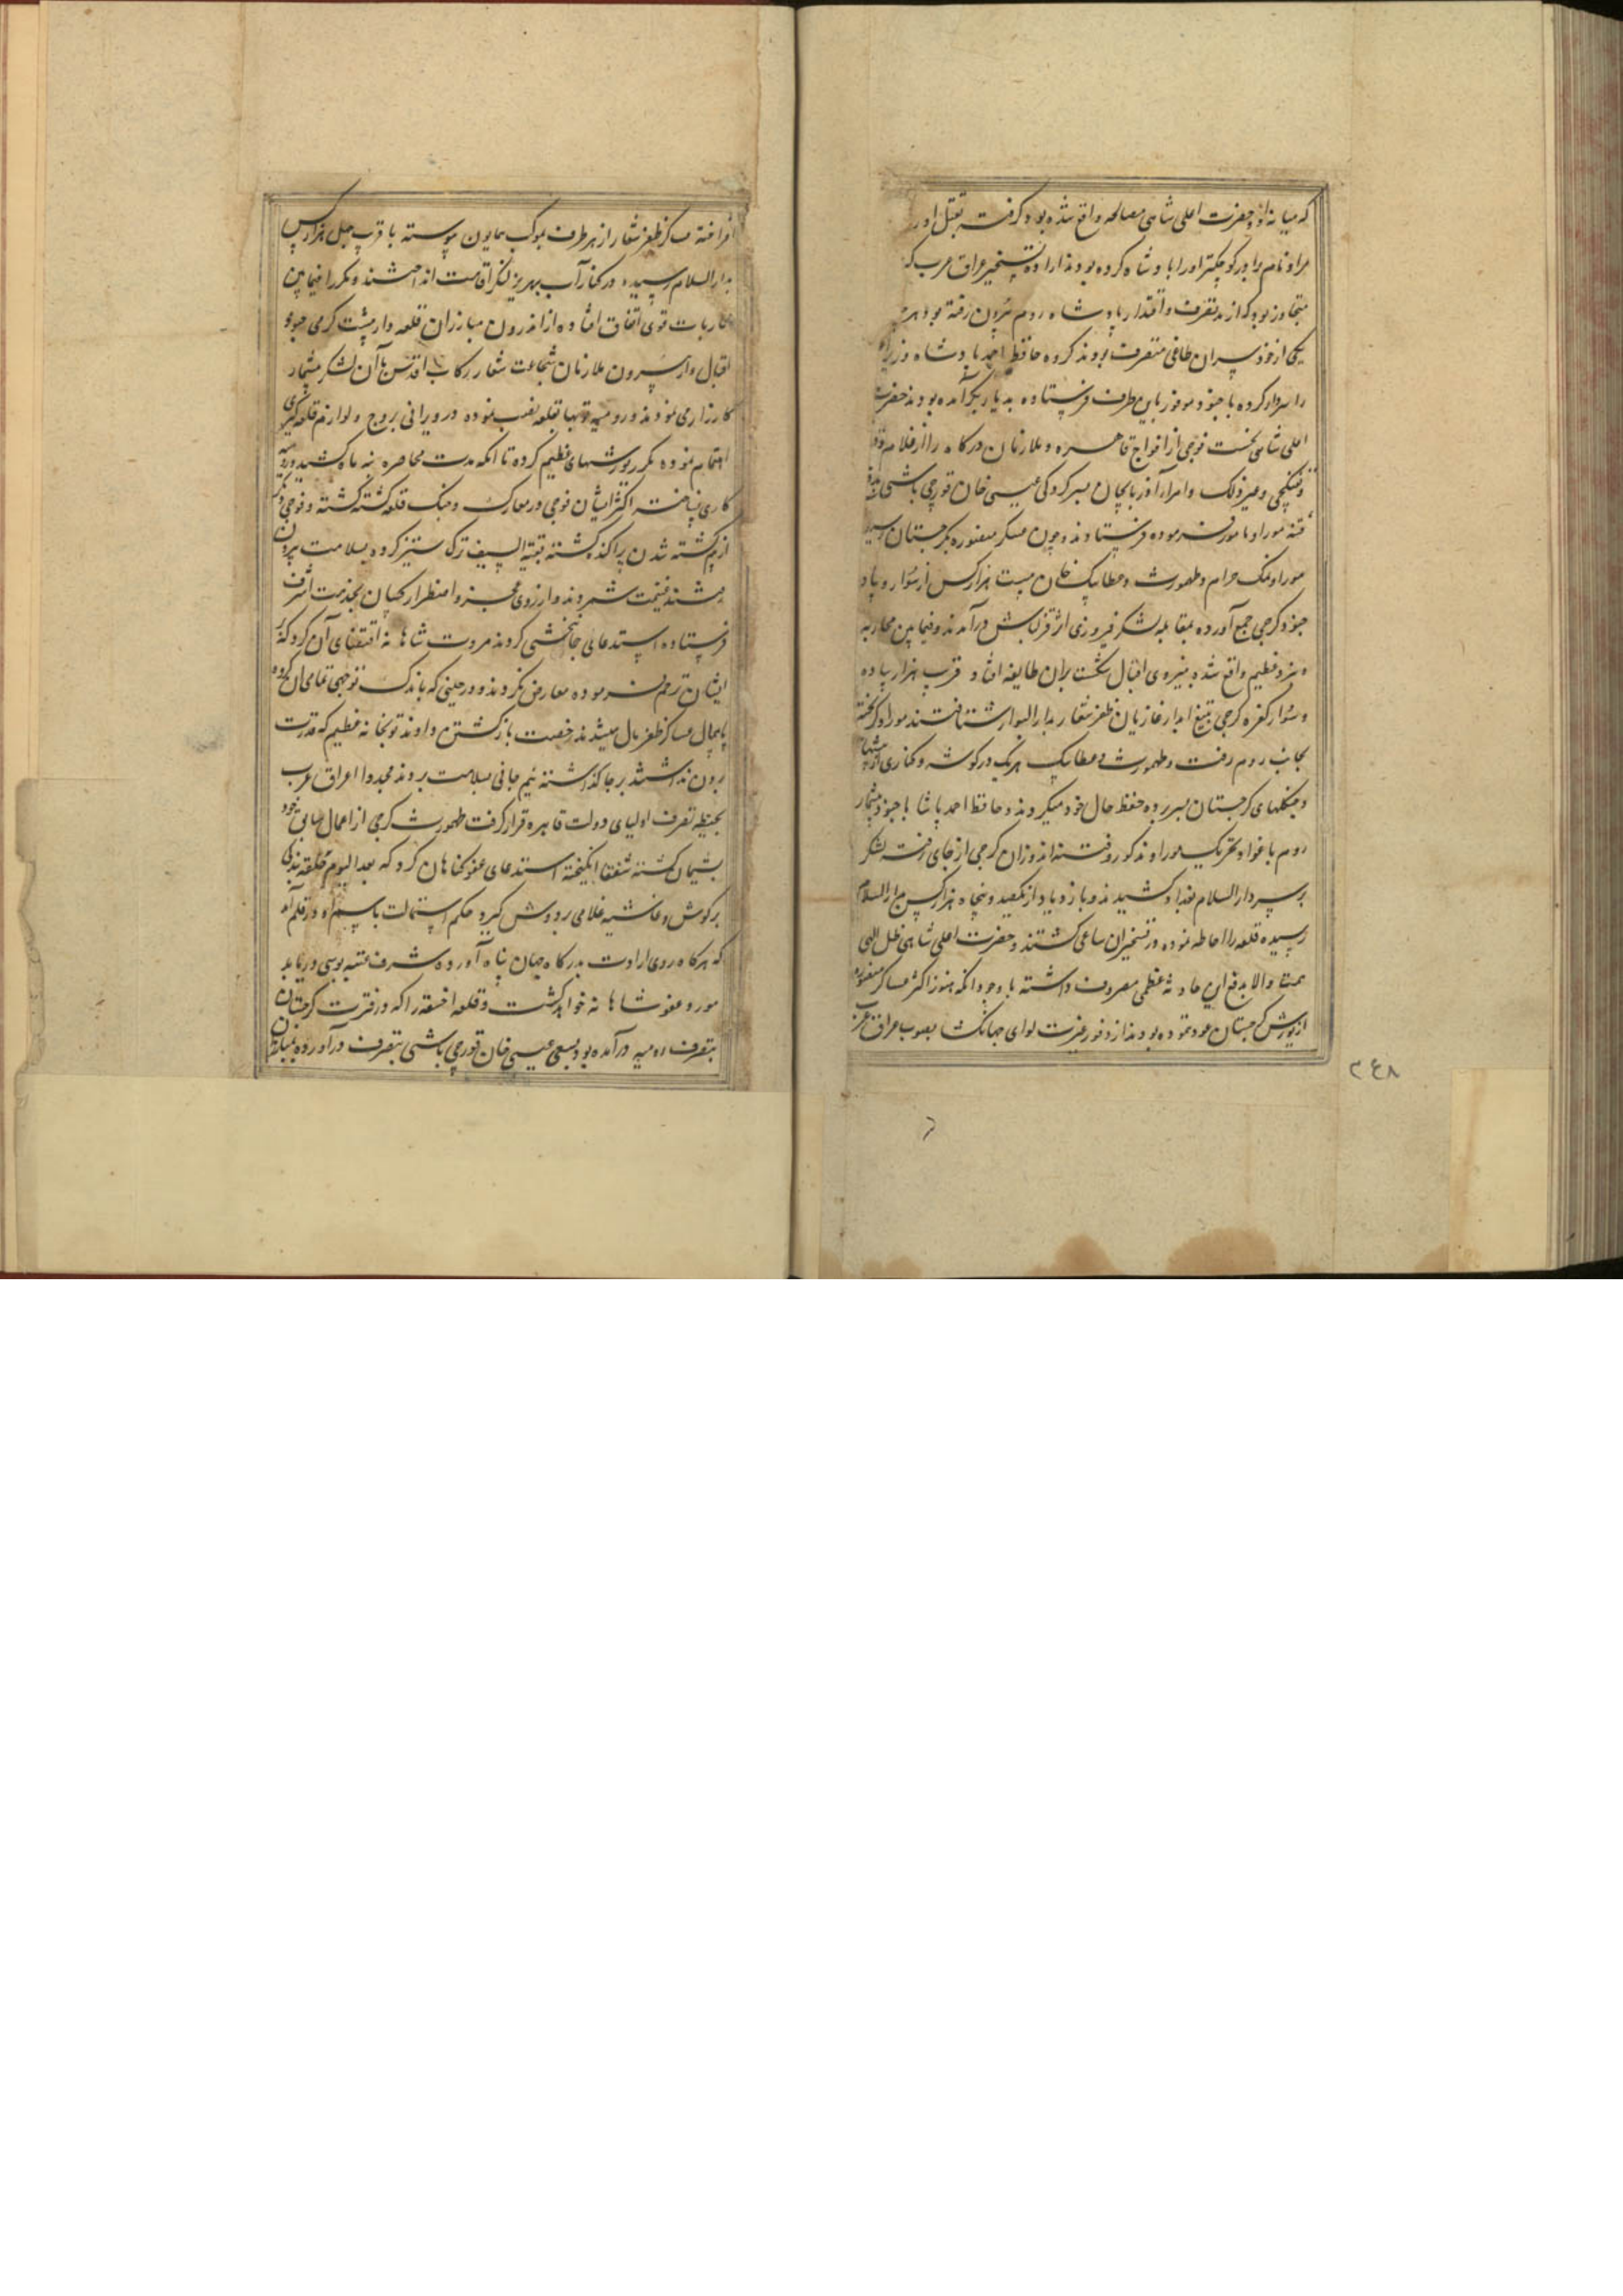 که میانه او و حضرت اعلی شاهی مصالحه واقع شده بود گرفته بقتل آورد
مراد نام برادر کوچکتر او را پادشاه کرده بودند اراده تسخیر عراق عرب که
متجاوز بود که از ید تصرف و اقتدار پادشاه روم بیرون رفته بود هر
یکی از خود سران طاغی متصرف بودند کرده حافظ احمد پادشاه وزیر
را سردار کرده با جنود موفور باین طرف فرستاده به دیار بکر آمده بودند حضرت
اعلی شاهی نخست فوجی از افواج قاهره و ملازمان درگاه را از غلام و قورچی
و تفنکچی و غیر ذلک و امراء آذربایجان بسرکردگی عیسی خان قورچی باشی بدفع
فتنه موراو مامور فرموده فرستادند و چون عسکر منصوره بکرجستان رسید
موراو نمک حرام و طهمورث و عطابیک خان بیست هزار کس از سوار و پیاده
جنود کرجی جمع آورده بمقابله لشکر فیروزی اثر قزلباش درآمدند و فیمابین محاربه
و نبرد عظیم واقع شده بنیروی اقبال شکست بران طایفه افتاد و قرب هزار پیاده
و سوار کفره کرجی بتیغ آبدار غازیان ظفر شعار بدار البوار شتافتند موراو گریخته
بجانب روم رفت و طهمورث و عطابیک هریک در گوشه و کناری از بیشها
و جنگلهای کرجستان بسر برده حفظ حال خود میکردند و حافظ احمد پاشا با جنود بیشمار
روم باغوا و تحریک موراو مذکور و فتنه اندوزان کرجی از جای رفته لشکر
بر سر دار السلام بغداد کشیدند و با زیاده از یکصد و پنجاه هزار کس بدار السلام
رسیده قلعه را احاطه نموده در تسخیر آن ساعی گشتند و حضرت اعلی شاهی ظل اللهی
همت والا بدفع این حادثه عظمی مصروف داشته با وجود آنکه هنوز اکثر عساکر منصوره
از یورش کرجستان عود ننموده بودند از وفور غیرت لوای جهانگشا بصوب عراق عرب
۳۴۸
افراخته عساکر ظفر شعار از هر طرف بموکب همایون پیوسته با قرب چهل هزار کس
بدار السلام رسیده در کنار آب بهریز لنگر اقامت انداختند و مکررا فیمابین
محاربات قوی اتفاق افتاده از اندرون مبارزان قلعه دار بپشت گرمی جنود
اقبال و از بیرون ملازمان شجاعت شعار رکاب اقدس با آن لشکر بیشمار
کارزار می نمودند و رومیه توپها بقلعه نصب نموده در ویرانی بروج و لوازم قلعه گیری
اهتمام نموده مکرر یورشهای عظیم کرده تا آنکه مدت محاصره بنه ماه کشید و رومیه
کاری نساخته اکثر ایشان فوجی در معارک و جنگ قلعه کشته گشته و فوجی دیگر
از هم گذشته شدن پراکنده گشته بقیة السیف ترک ستیز کرده بسلامت بیرون
شدند غنیمت شمردند و از روی عجز و اضطرار کسان بخدمت اشرف
فرستاده استدعای جانبخشی کردند مروت شاهانه اقتضای آن کرد که بر
ایشان ترحم فرموده معارض نگردند و در حینی که باندک توجهی تمامی آن گروه
پایمال عساکر ظفر مآل میشدند رخصت بازگشتن دادند توپخانه عظیم که قدرت
بردن نداشتند بر جا گذاشته نیم جانی بسلامت بردند مجددا عراق عرب
بحیطه تصرف اولیای دولت قاهره قرار گرفت طهمورث کرجی از اعمال سابق خود
پشیمان گشته شفعا انگیخته استدعای عفو گناهان کرد که بعد الیوم حلقه بندگی
در گوش و غاشیه غلامی بر دوش گیرد حکم استمالت باسم او در قلم آمد
که هرگاه روی ارادت بدرگاه جهان پناه آورده شرف عتبه بوسی دریابد
مورد عفو شاهانه خواهد گشت و قلعه اخسقه را که در فترت کرجستان
بتصرف رومیه درآمده بود بسعی عیسی خان قورچی باشی بتصرف درآورده